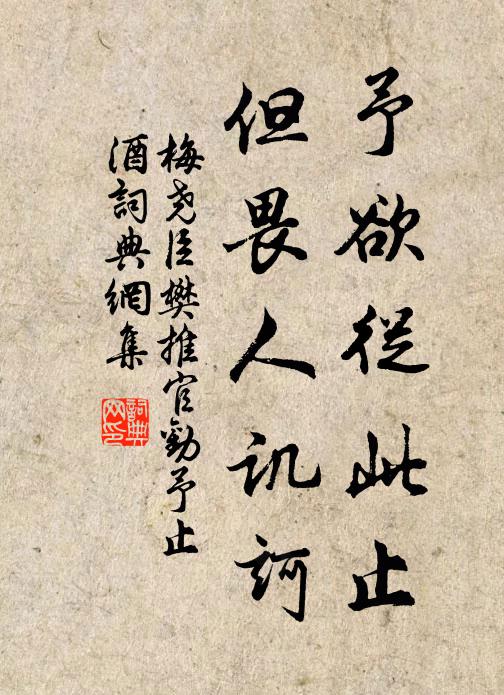 予欲從此止
但畏人訊訶
梅堯臣樊推官勸予止
酒詞典網集
詞典
网印